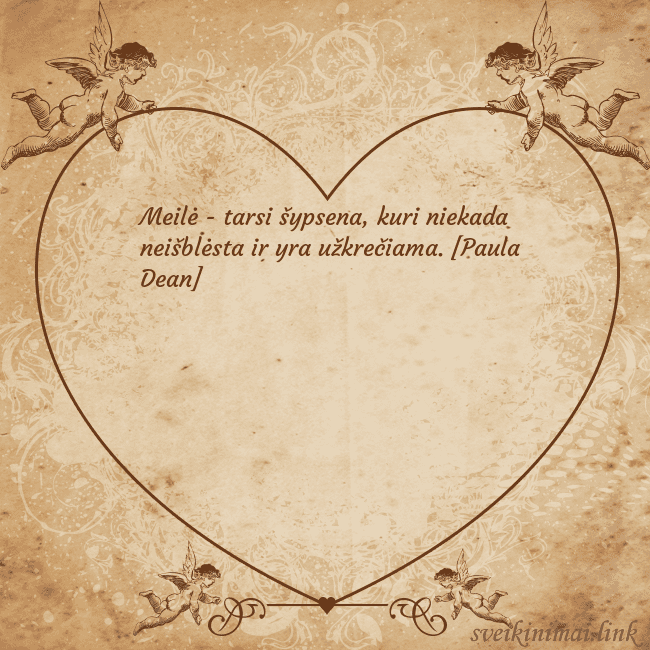 Meilė - tarsi šypsena, kuri niekada
neišblėsta ir yra užkrečiama. [Paula
Dean]
sveikinimai.link